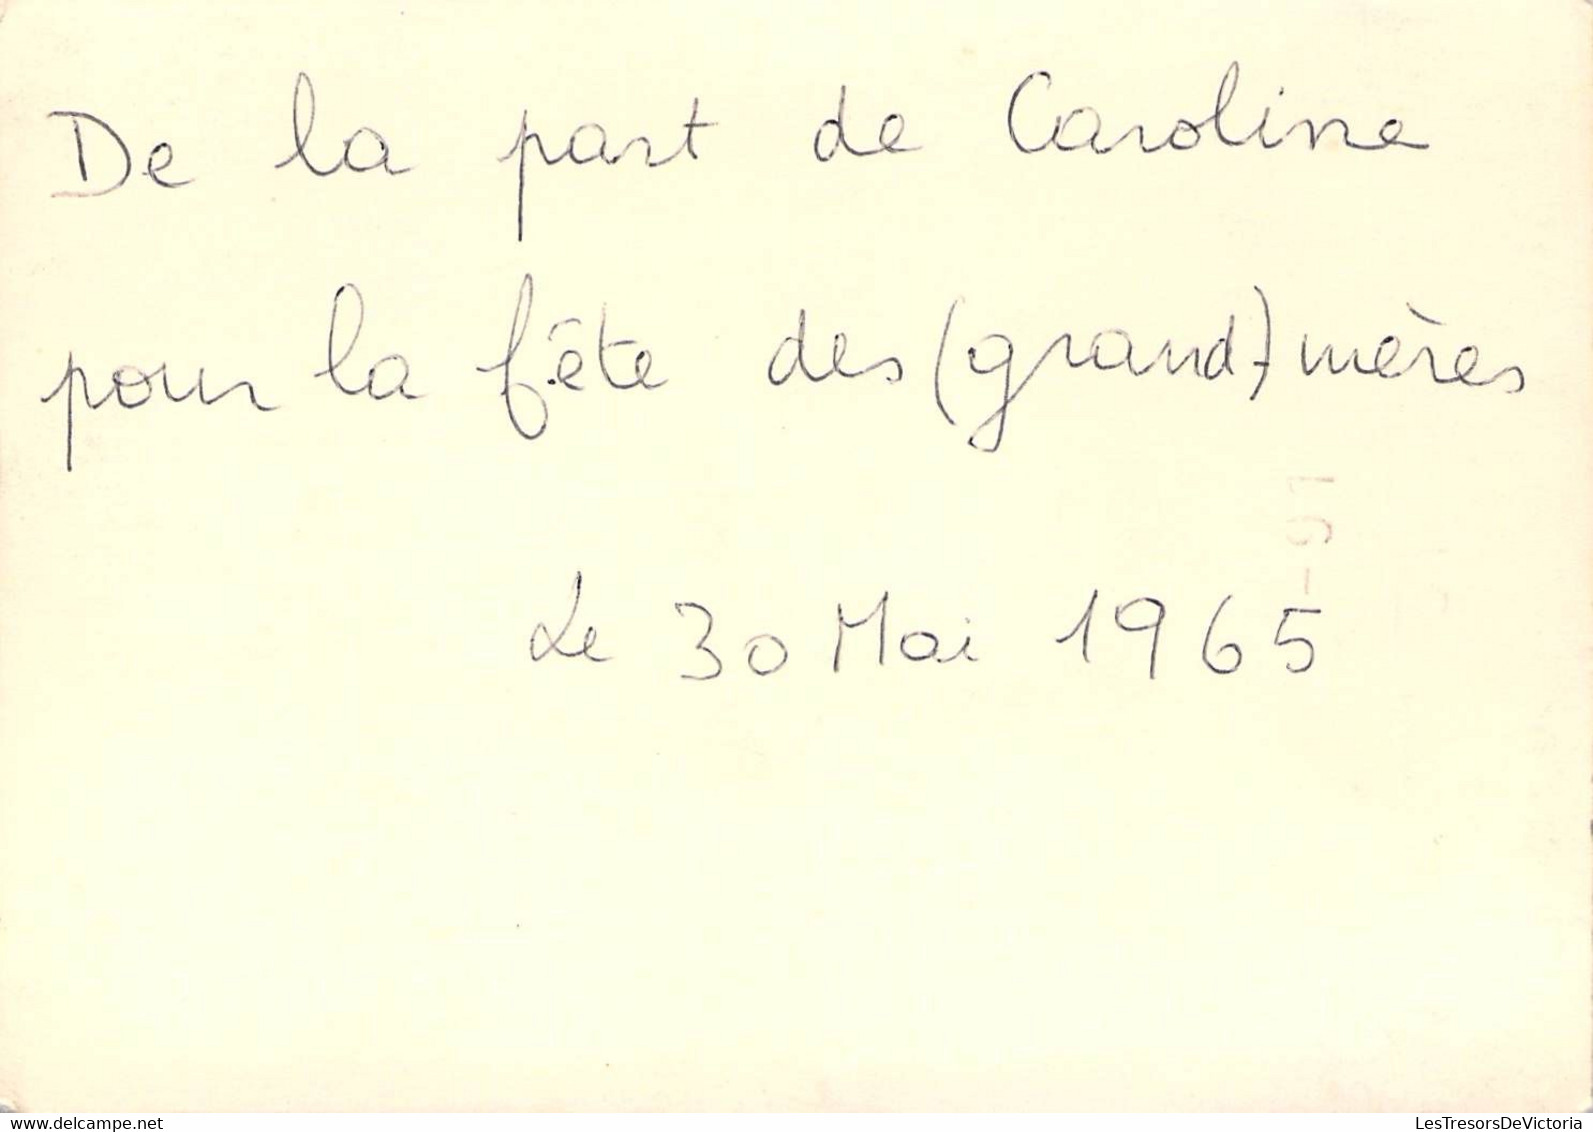 De la part de Caroline
pour la fête des (grand-) mères
16-
Le 30 Mai 1965
www.delcampe.net
LesTresorsDeVictoria